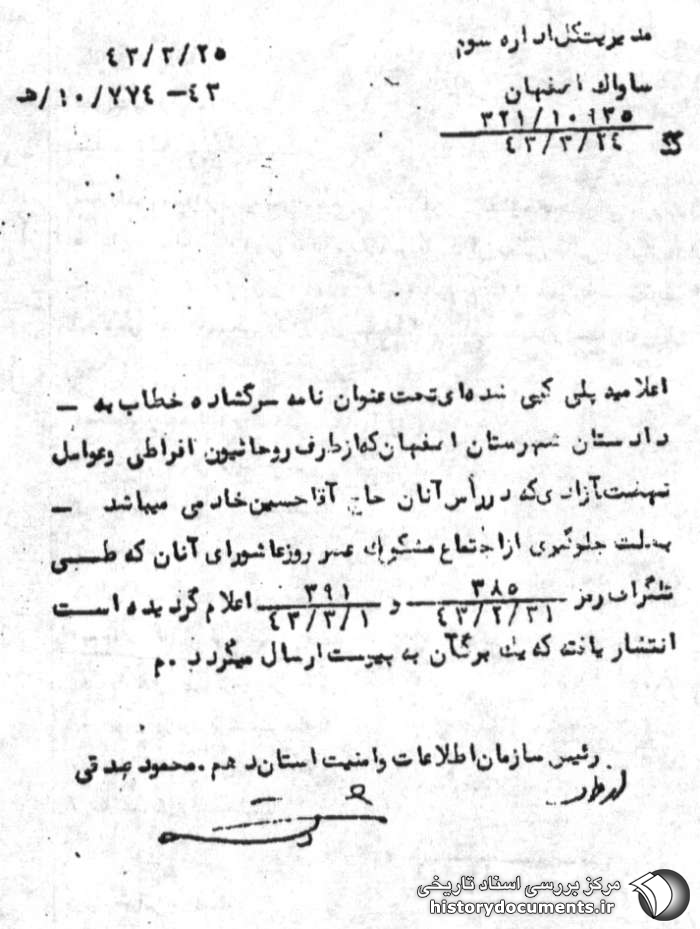 مدیریت کل اداره سوم
۴۳/۳/۲۵
ساواك اصفهان
۴۳ – ۱۰/۷۷۴/هـ
۳۲۱/۱۰۶۳۵
۴۳/۳/۲۴
اعلامیه پلی کپی شده‌ای تحت عنوان نامه سرگشاده خطاب به –
دادستان شهرستان اصفهان که از طرف روحانیون افراطی و عوامل
نهضت آزادی که در رأس آنان حاج آقا حسین خادمی میباشد –
بعلت جلوگیری از اجتماع مشکوك عصر روز عاشورای آنان که طی
تلگراف رمز ۳۸۵ و ۳۹۱ اعلام گردیده است
۴۳/۲/۳۱ ۴۳/۳/۱
انتشار یافته که یك برگ آن به پیوست ارسال میگردد . م
رئیس سازمان اطلاعات و امنیت استان دهم . محمود صدقی
مرکز بررسی اسناد تاریخی
historydocuments.ir